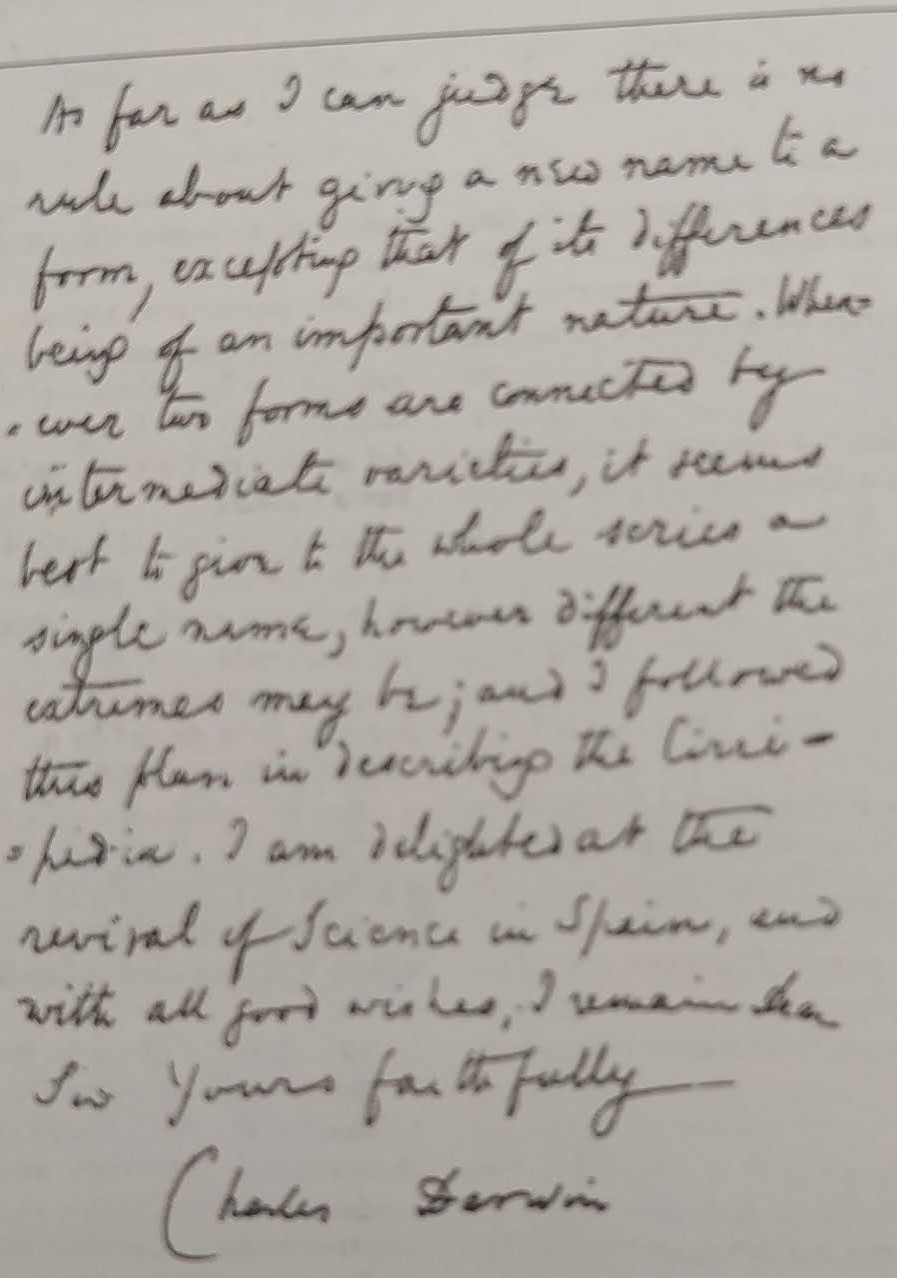 As far as I can judge there is no
rule about giving a new name to a
form, excepting that of its differences
being of an important nature. When=
=ever two forms are connected by
intermediate varieties, it seems
best to give to the whole series a
single name, however different the
extremes may be; and I followed
this plan in describing the Cirri-
=pedia. I am delighted at the
revival of Science in Spain, and
with all good wishes, I remain Dear
Sir Yours faithfully
Charles Darwin